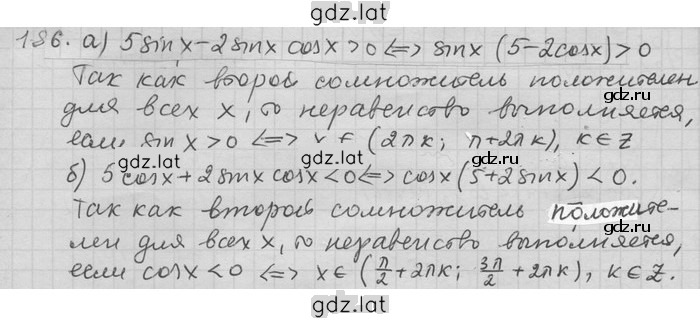 gdz.latgdz.lat
186. а) 5sinx-2sinx cosx>0 <=> sinx (5-2cosx)>0
Так как второй сомножитель положителен
gdz.lat
для всех x, то неравенство выполняется,
gdz.lat
если sinx>0 <=> x ∈ (2πк; π+2πк), к∈Z
gdz.lat gdz.lat
б) 5cosx+2sinx cosx<0<=> cosx(5+2sinx)<0.
Так как второй сомножитель положите-
gdz.lat
лен для всех x, то неравенство выполняется,
gdz.lat
если cosx<0 <=> x∈(π/2+2πк; 3π/2+2πк), к∈Z.
gdz.lat